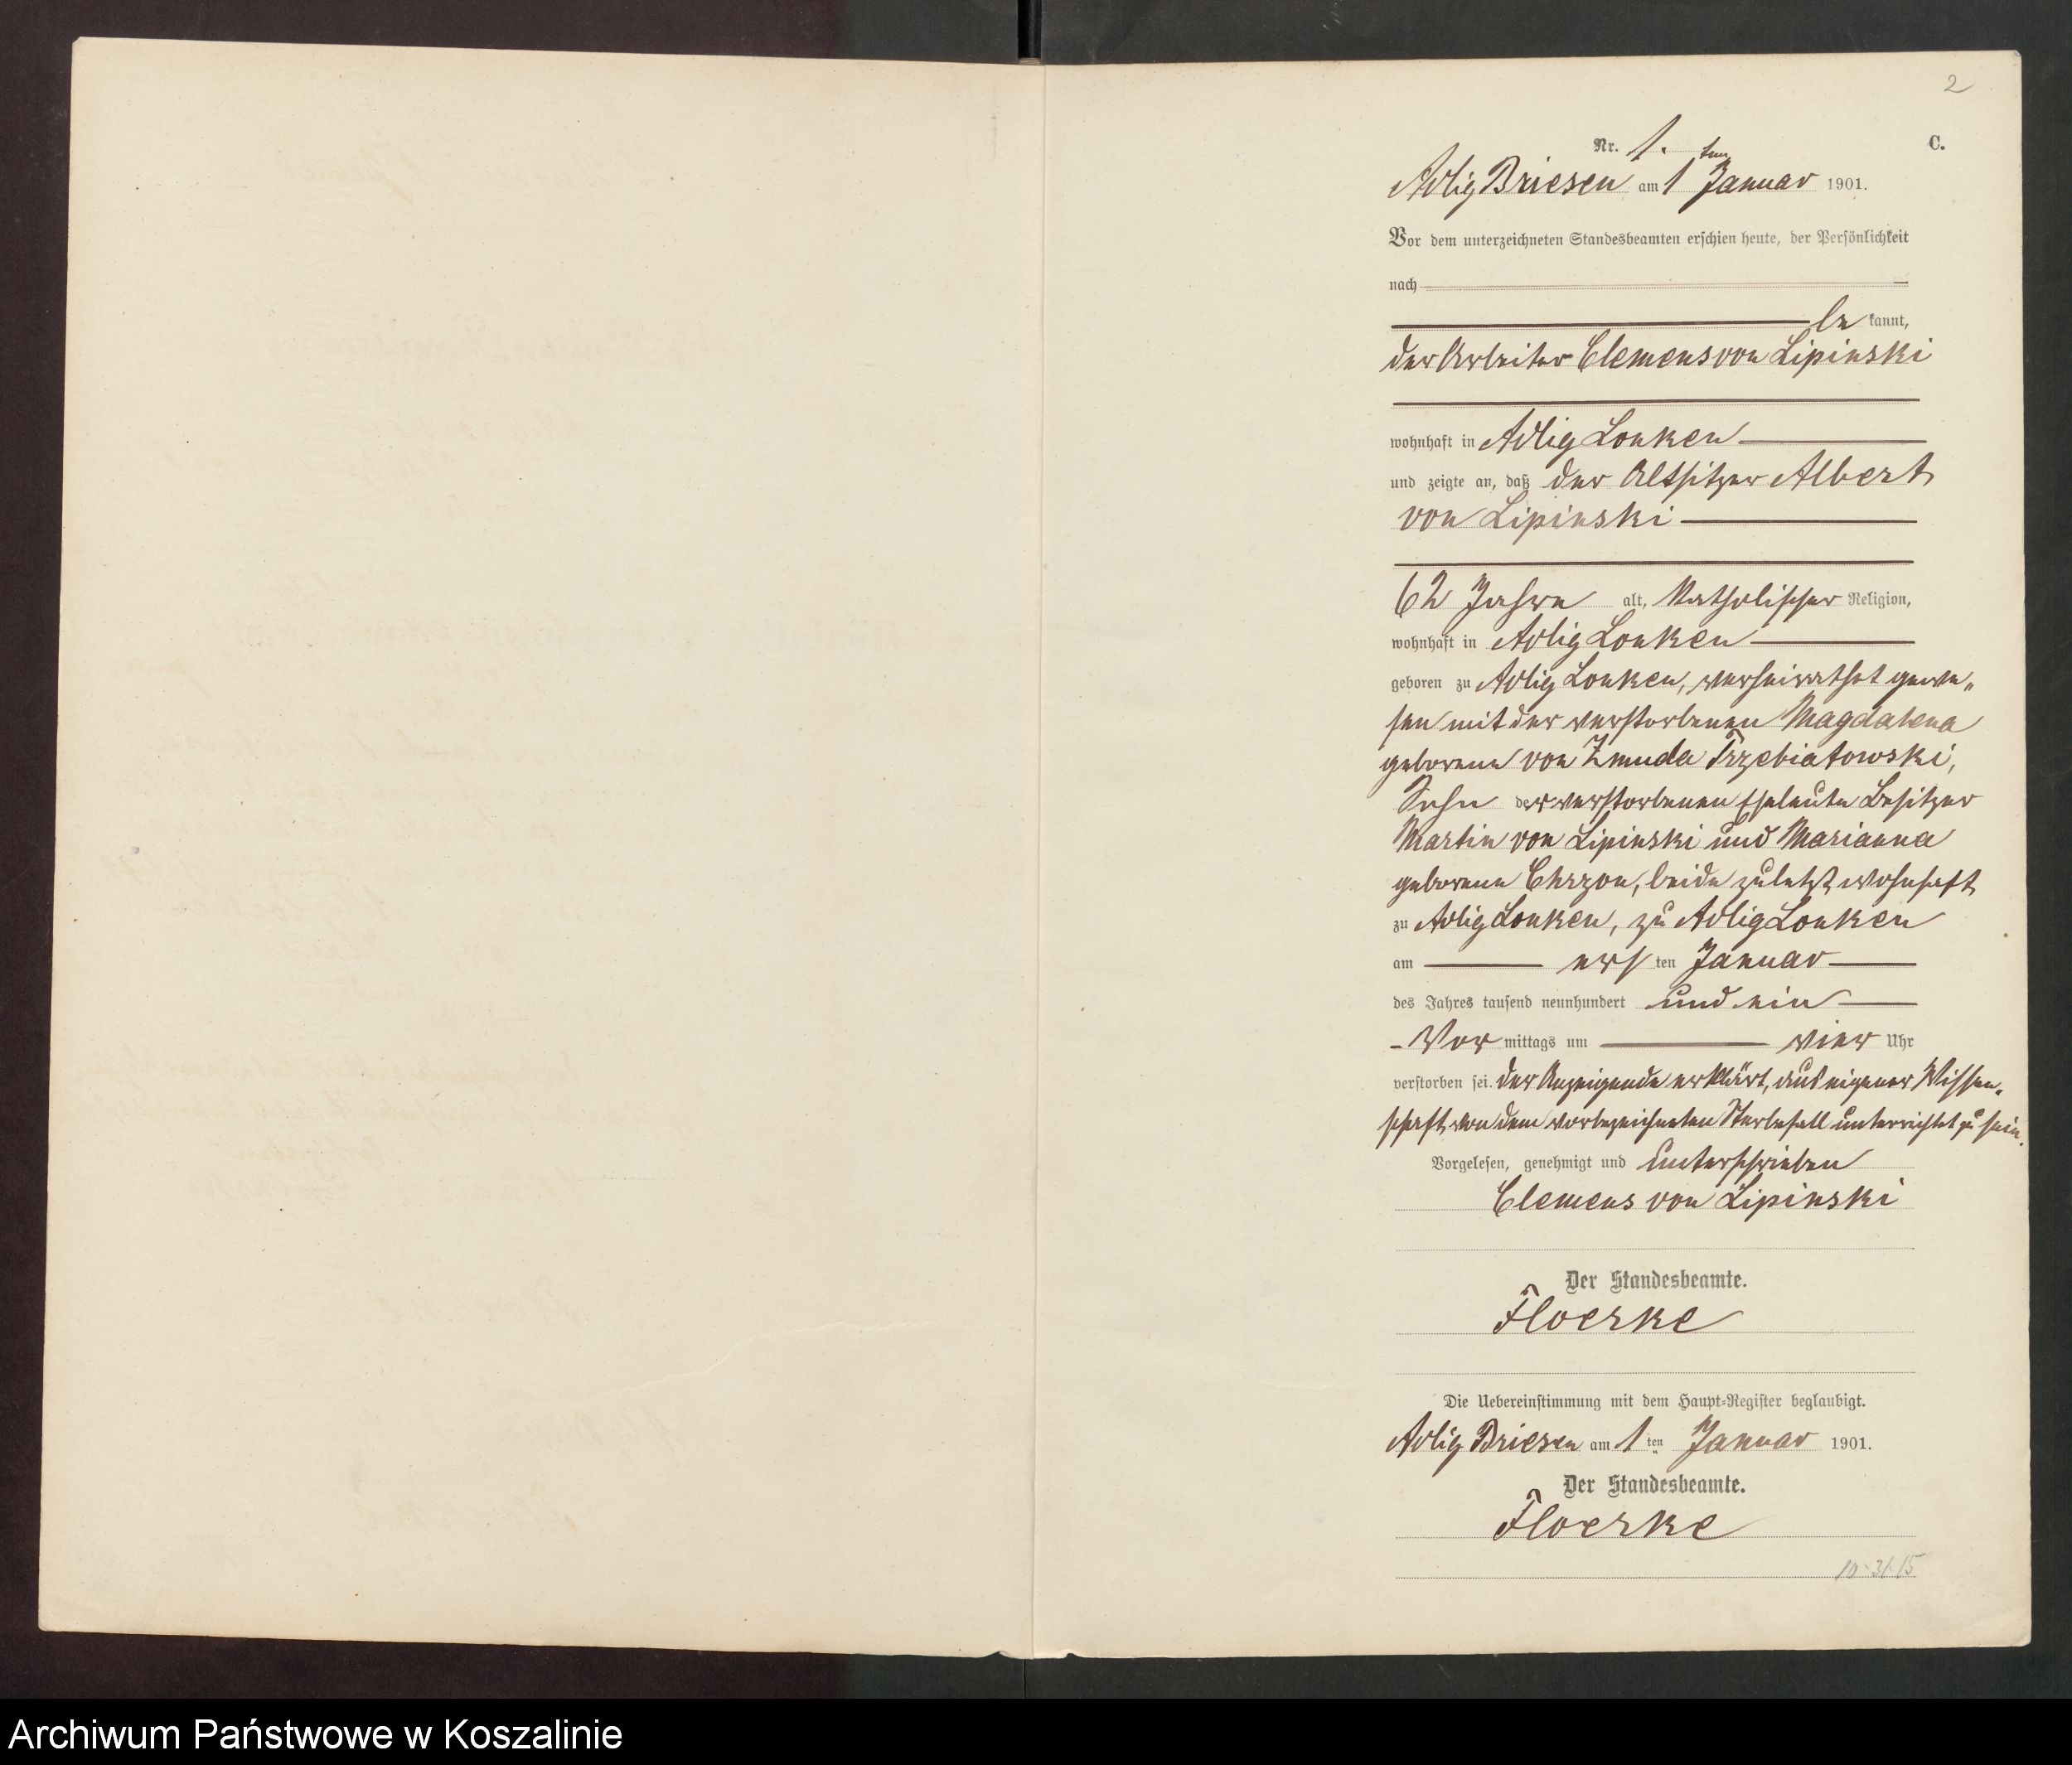 2
Nr. 1. C.
Adlig Briesen am 1ten Januar 1901.
Vor dem unterzeichneten Standesbeamten erschien heute, der Persönlichkeit
nach
be kannt,
der Arbeiter Clemens von Lipinski
wohnhaft in Adlig Lonken
und zeigte an, daß der Altsitzer Albert
von Lipinski
62 Jahre alt, katholischer Religion,
wohnhaft in Adlig Lonken
geboren zu Adlig Lonken, verheirathet gewe„
sen mit der verstorbenen Magdalena
geborene von Zmuda Trzebiatowski,
Sohn der verstorbenen Eheleute Besitzer
Martin von Lipinski und Marianna
geborene Chrzon, beide zuletzt wohnhaft
zu Adlig Lonken, zu Adlig Lonken
am ersten Januar
des Jahres tausend neunhundert und ein
Vor mittags um vier Uhr
verstorben sei. Der Anzeigende erklärt, aus eigener Wissen„
schaft von dem vorbezeichneten Sterbefall unterrichtet zu sein.
Vorgelesen, genehmigt und unterschrieben
Clemens von Lipinski
Der Standesbeamte.
Floerke
Die Uebereinstimmung mit dem Haupt-Register beglaubigt.
Adlig Briesen am 1ten Januar 1901.
Der Standesbeamte.
Floerke
10-31-15
Archiwum Państwowe w Koszalinie